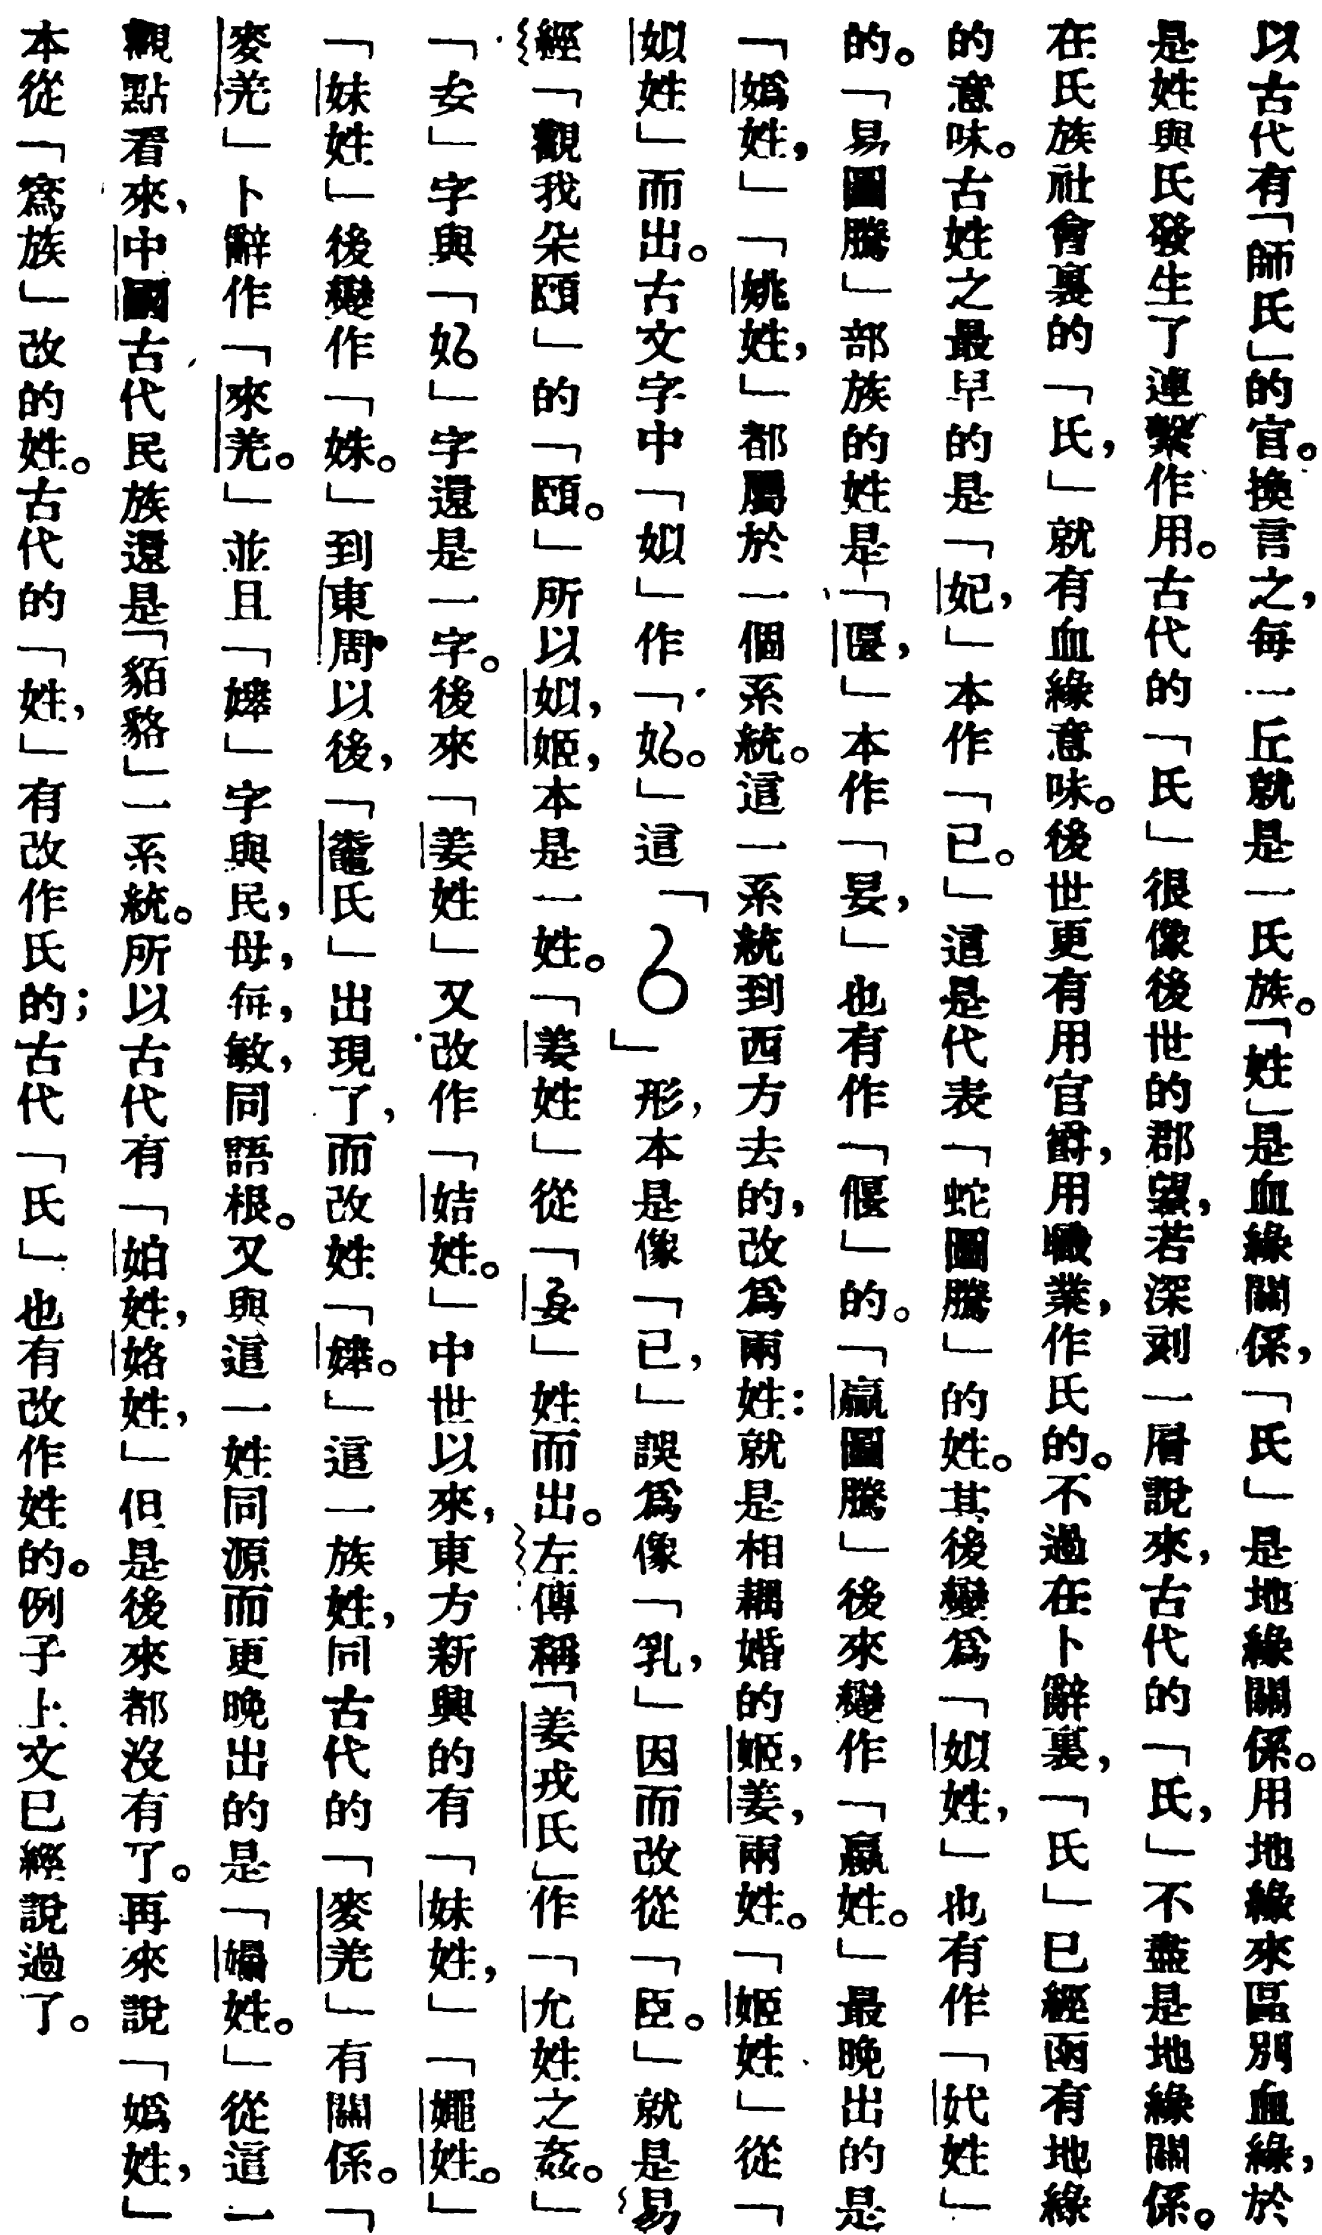 以古代有「師氏」的官。換言之，每一丘就是一氏族。「姓」是血緣關係，「氏」是地緣關係。用地緣來區別血緣，於
是姓與氏發生了連繫作用。古代的「氏」很像後世的郡望，若深刻一層說來，古代的「氏，」不盡是地緣關係。
在氏族社會裏的「氏，」就有血緣意味。後世更有用官爵，用職業，作氏的。不過在卜辭裏，「氏」已經函有地緣
的意味。古姓之最早的是「妃，」本作「已。」這是代表「蛇圖騰」的姓。其後變爲「姒姓，」也有作「妣姓」
的。「易圖騰」部族的姓是「匽，」本作「晏，」也有作「偃」的。「蠃圖騰」後來變作「嬴姓。」最晚出的是
「嬀姓，」「姚姓，」都屬於一個系統。這一系統到西方去的，改爲兩姓：就是相耦婚的姬，姜，兩姓。「姬姓」從「
姒姓」而出。古文字中「姒」作「𡛟。」這「」形，本是像「已，」誤爲像「乳，」因而改從「𦣞。」就是易
經「觀我朵頤」的「頤。」所以姒，姬，本是一姓。「姜姓」從「妟」姓而出。左傳稱「姜戎氏」作「允姓之姦。」
「㚣」字與「𡛟」字還是一字。後來「姜姓」又改作「姞姓。」中世以來，東方新興的有「妹姓，」「嬭姓。」
「妹姓」後變作「姝。」到東周以後，「鼄氏」出現了，而改姓「㜊。」這一族姓，同古代的「麥羌」有關係。「
麥羌」卜辭作「來羌。」並且「㜊」字與民，母，每，敏，同語根。又與這一姓同源而更晚出的是「嬀姓。」從這一
觀點看來，中國古代民族還是「貊貉」一系統。所以古代有「妭姓，姡姓，」但是後來都沒有了。再來說「嬀姓，」
本從「寪族」改的姓。古代的「姓，」有改作氏的；古代「氏」也有改作姓的。例子上文已經說過了。